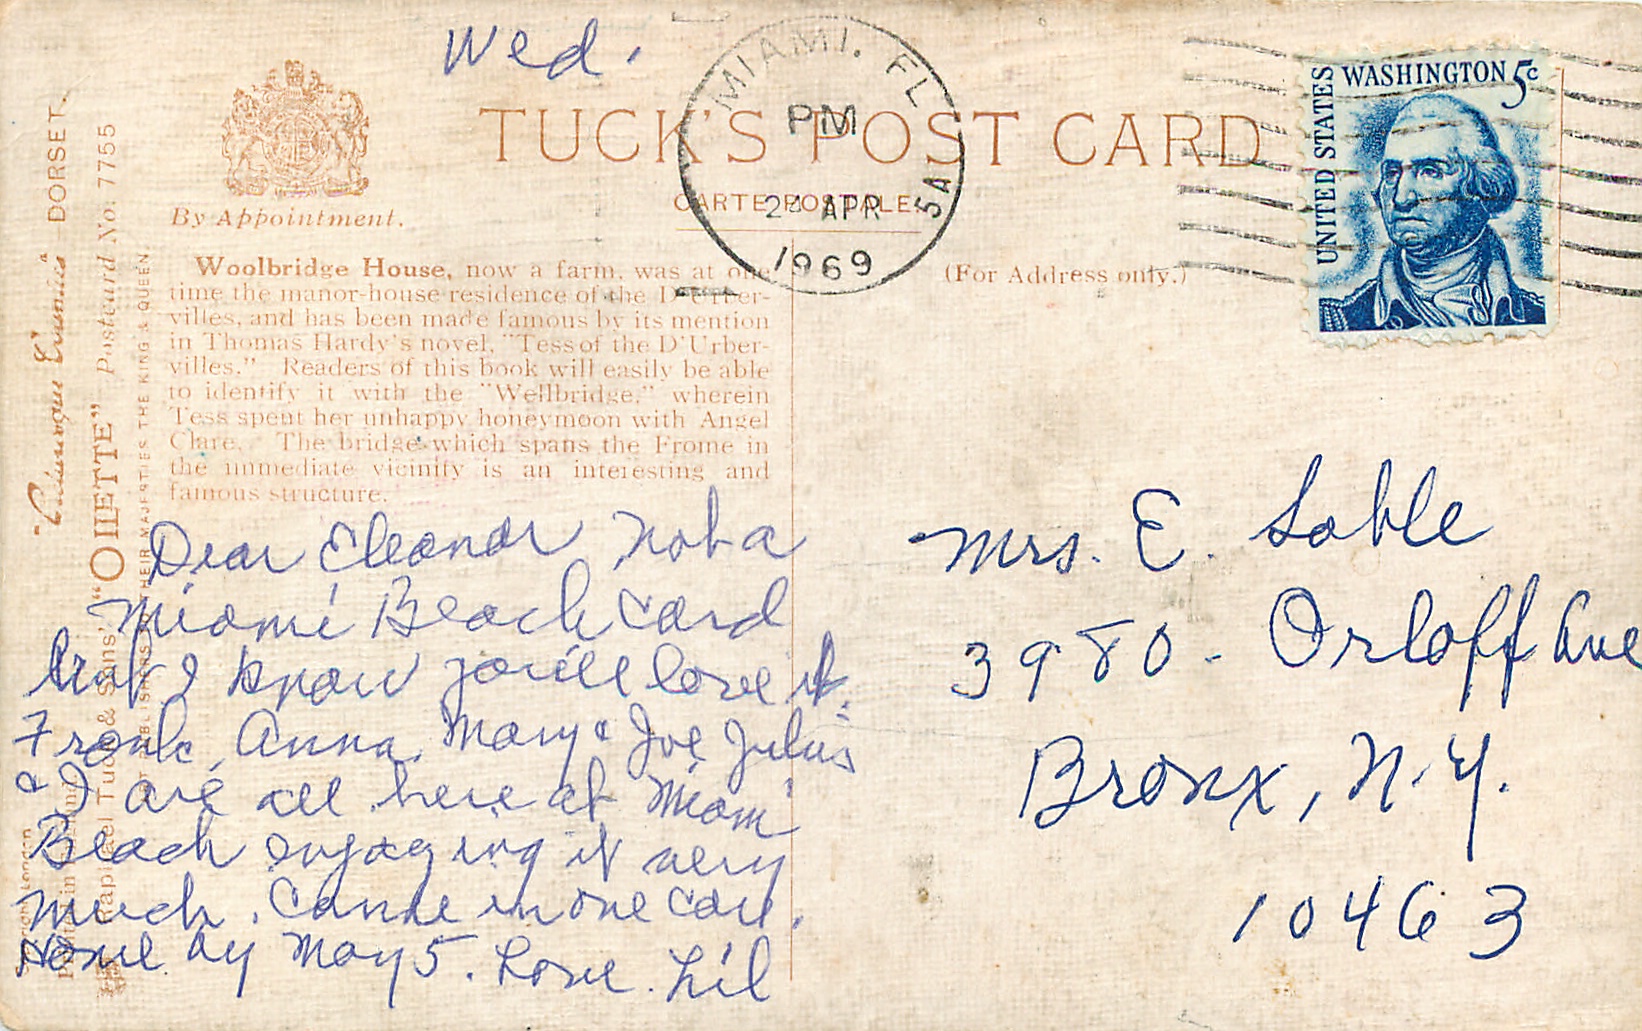 Wed.
TUCK'S POST CARD
CARTE POSTALE
(For Address only.)
MIAMI. FL
PM
APR
1969
UNITED STATES
WASHINGTON 5c
By Appointment.
Woolbridge House, now a farm, was at one
time the manor-house residence of the D'Urber-
villes, and has been made famous by its mention
in Thomas Hardy's novel, "Tess of the D'Urber-
villes." Readers of this book will easily be able
to identify it with the "Wellbridge," wherein
Tess spent her unhappy honeymoon with Angel
Clare. The bridge which spans the Frome in
the immediate vicinity is an interesting and
famous structure.
DORSET.
"OILETTE" Postcard No. 7755
THEIR MAJESTIES THE KING & QUEEN
Raphael Tuck & Sons'
Dear Eleanor Not a
Miami Beach Card
but I know you'll love it.
Frank, Anna, Mary & Joe Julius
& I are all here at Miami
Beach enjoying it very
much. Came in one car.
Home by May 5. Love. Lil
Mrs. E. Sable
3980 - Orloff Ave
Bronx, N.Y.
10463